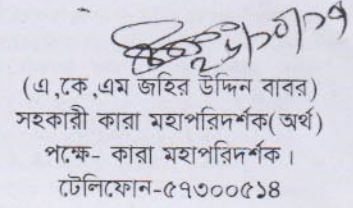 (এ,কে,এম জহির উদ্দিন বাবর)
সহকারী কারা মহাপরিদর্শক(অর্থ)
পক্ষে- কারা মহাপরিদর্শক।
টেলিফোন-৫৭৩০০৫১৪